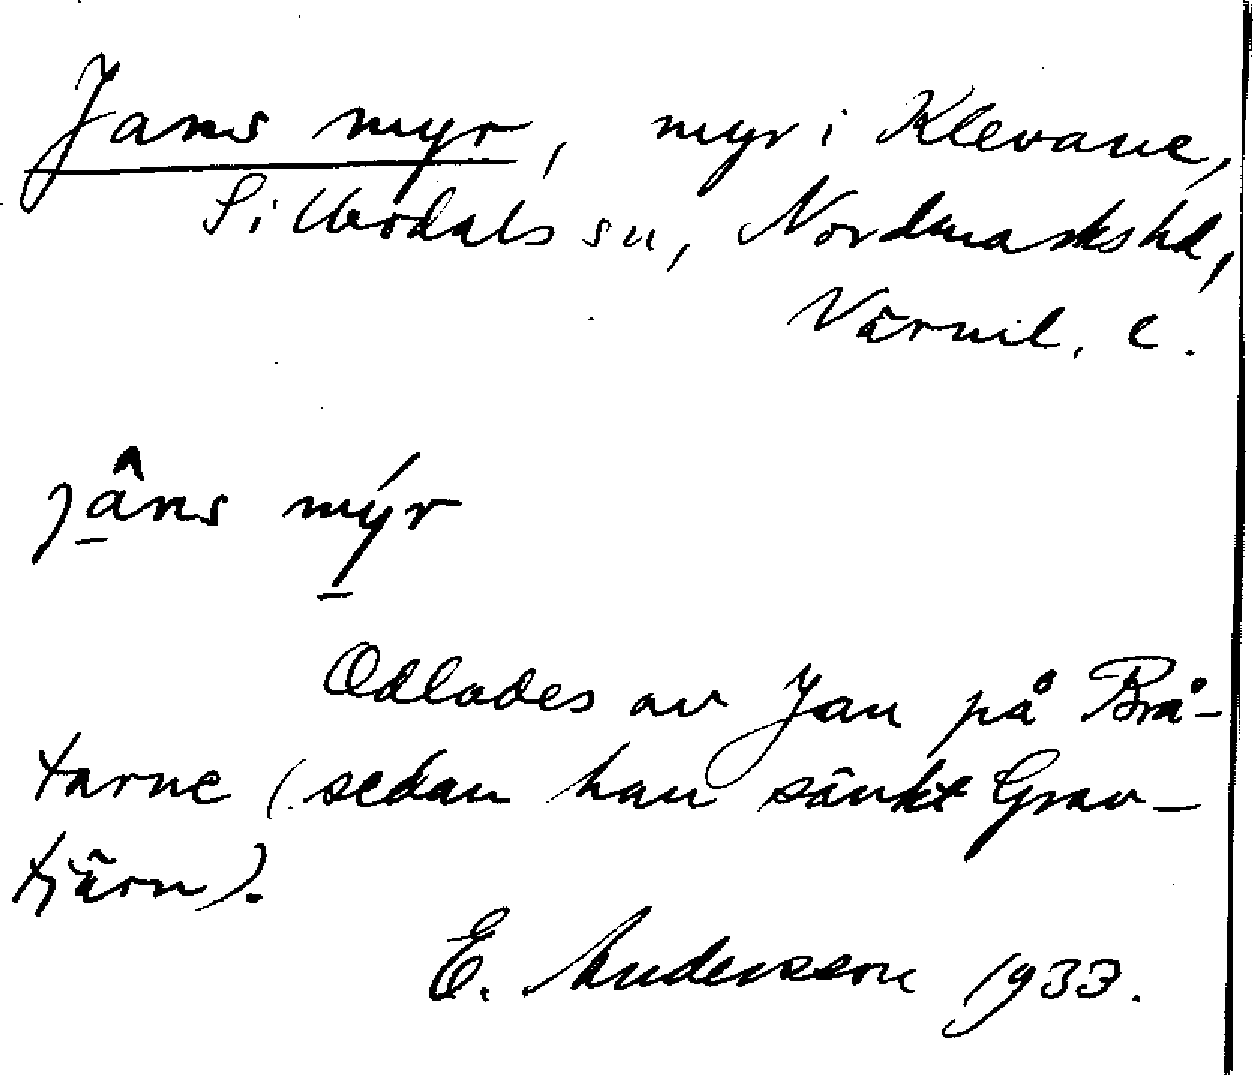 Jans myr, myr i Klevane,
Sillerödals sn, Nordmarkshd,
Värml. l.
jâns mýr
Odlades av Jan på Brå-
tarne (sedan han sänkt Grav-
tjärn).
E. Andersson 1933.